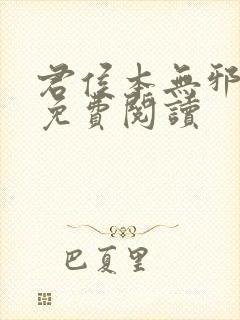 君侯本無邪
免費閱讀
巴夏里